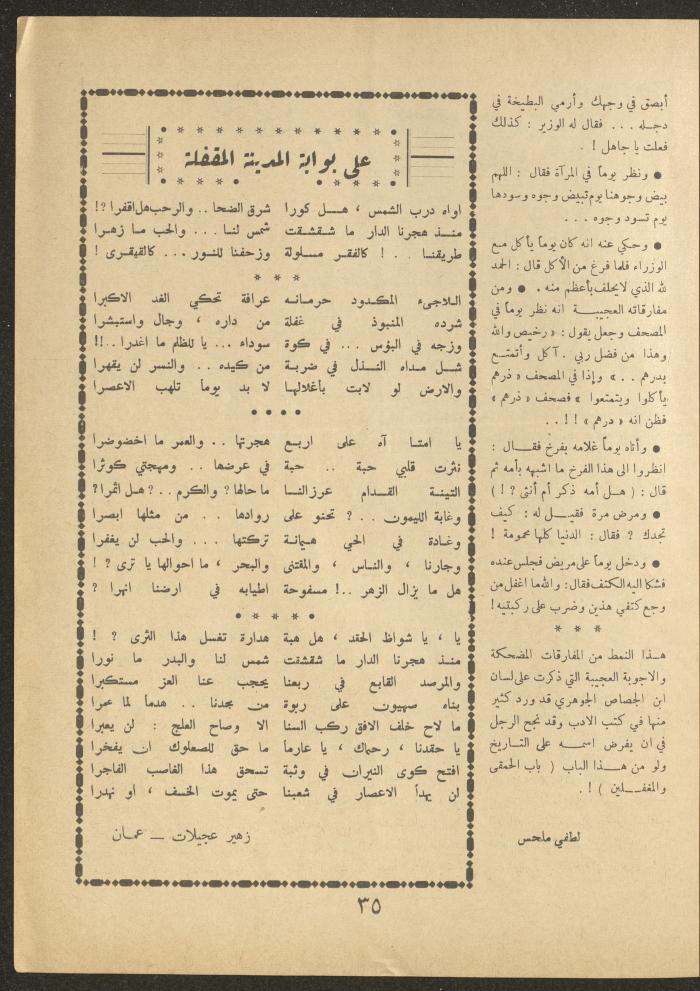 أبصق في وجهك وأرمي البطيخة في
دجله . . . فقال له الوزير : كذلك
فعلت يا جاهل ! .
● ونظر يوماً في المرآة فقال : اللهم
بيض وجوهنا يوم تبيض وجوه وسودها
يوم تسود وجوه . . .
● وحكي عنه انه كان يوماً يأكل مع
الوزراء فلما فرغ من الأكل قال : الحمد
لله الذي لا يحلف بأعظم منه . ● ومن
مفارقاته العجيبة انه نظر يوماً في
المصحف وجعل يقول : « رخيص والله
وهذا من فضل ربي . آكل وأتمتع
بدرهم . . » وإذا في المصحف « ذرهم
يأكلوا ويتمتعوا » فصحف « ذرهم »
فظن انه « درهم » ! ! . .
● وأتاه يوماً غلامه بفرخ فقال :
انظروا الى هذا الفرخ ما اشبهه بأمه ثم
قال : ( هل أمه ذكر أم أنثى ? ! )
● ومرض مرة فقيل له : كيف
تجدك ? فقال : الدنيا كلها محمومة !
● ودخل يوماً على مريض فجلس عنده
فشكا اليه الكتف فقال : والله ما اغفل من
وجع كتفي هذين وضرب على ركبتيه !
* * *
هذا النمط من المفارقات المضحكة
والاجوبة العجيبة التي ذكرت على لسان
ابن الجصاص الجوهري قد ورد كثير
منها في كتب الادب وقد نجح الرجل
في ان يفرض اسمه على التاريخ
ولو من هذا الباب ( باب الحمقى
والمغفلين ) ! .
لطفي ملحس
على بوابة المدينة المقفلة
اواه درب الشمس ، هل كورا شرق الضحا . . والرحب هل اقفرا ?!
منذ هجرنا الدار ما شقشقت شمس لنا . . . والحب ما زهرا
طريقنا . . ! كالفقر مسلولة وزحفنا للنور . . . كالقيقرى !
* * *
اللاجىء المكدود حرمانه عرافة تحكي الغد الاكبرا
شرده المنبوذ في غفلة من داره ، وجال واستبشرا
وزجه في البؤس . . . في كوة سوداء . . . يا للظلم ما اغدرا . . !!
شل مداه النذل في ضربة من كيده . . والنسر لن يقهرا
والارض لو لابت بأغلالها لا بد يوماً تلهب الاعصرا
● ● ● ●
يا امتا آه على اربع هجرتها . . والعمر ما اخضوضرا
نثرت قلبي حبة . . حبة في عرضها . . ومهجتي كوثرا
التينة القدام عرزالنا ما حالها ? والكرم . . ? هل اثمرا ?
وغابة الليمون . . ? تحنو على روادها . . من مثلها ابصرا
وغادة في الحي هيمانة تركتها . . . والحب لن يغفرا
وجارنا ، والناس ، والمقتنى والبحر ، ما احوالها يا ترى ? !
هل ما يزال الزهر . . ! مسفوحة اطيابه في ارضنا انهرا ?
● * ● * ● * ●
يا ، يا شواظ الحقد ، هل هبة هدارة تغسل هذا الثرى ? !
منذ هجرنا الدار ما شقشقت شمس لنا والبدر ما نورا
والمرصد القابع في ربعنا يحجب عنا العز مستكبرا
بناه صهيون على ربوة من مجدنا . . هدماً لما عمرا
ما لاح خلف الافق ركب السنا الا وصاح العلج : لن يعبرا
يا حقدنا ، رحماك ، يا عارما ما حق للصعلوك ان يفخرا
افتح كوى النيران في وثبة تسحق هذا الغاصب الفاجرا
لن يهدأ الاعصار في شعبنا حتى يموت الخسف ، أو نهدرا
زهير عجيلات — عمان
٣٥